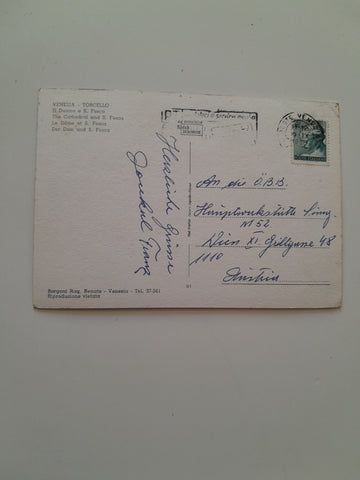 VENEZIA - TORCELLO
Il Duomo e S. Fosca
The Cathedral and S. Fosca
Le Dôme et S. Fosca
Der Dom und S. Fosca
Herzliche Grüsse
Franz
An die Ö.B.B.
Hauptwerkstätte Simg.
N 52
Wien XI. Grillgasse 48
1110
Austria
Borgoni Rag. Renato - Venezia - Tel. 37-361
Riproduzione vietata